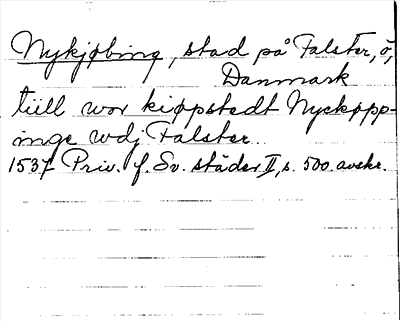 Nykjøbing, stad på Falster, ö,
Danmark
tiill wor kiøpstedt Nyckøpp-
inge wdj Falster.
1537 Priv. f. Sv. städer II, s. 500. avskr.